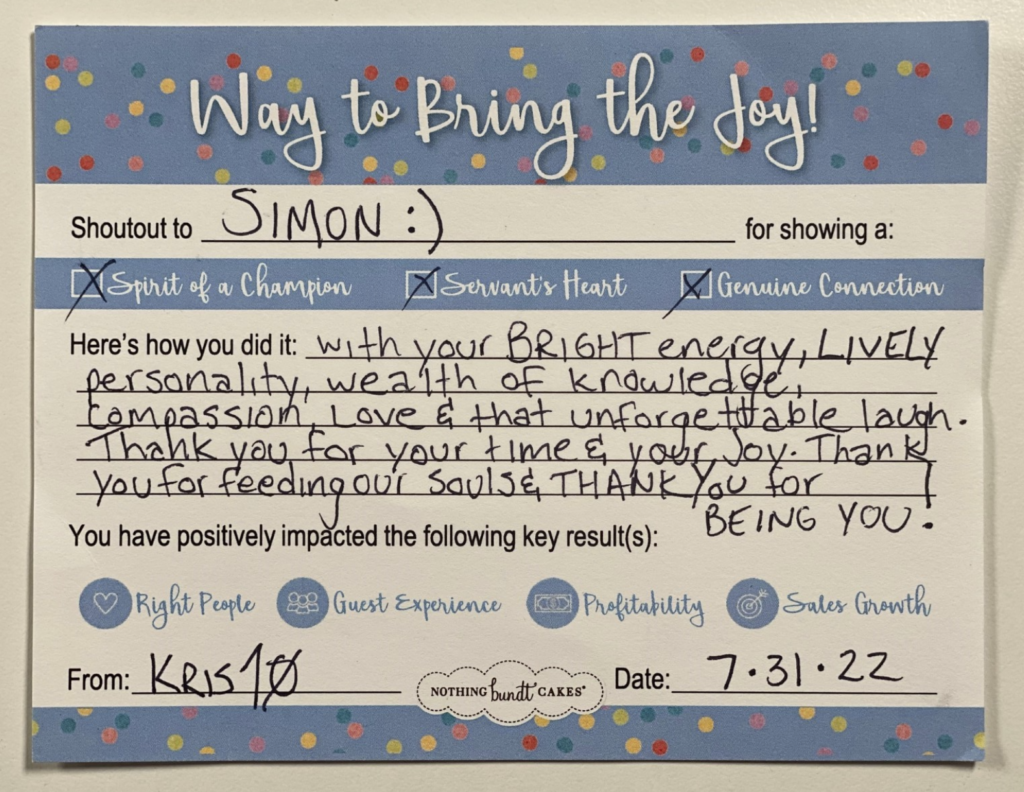 Way to Bring the Joy!
Shoutout to SIMON :) for showing a:
Spirit of a Champion Servant's Heart Genuine Connection
Here's how you did it: with your BRIGHT energy, LIVELY
personality, wealth of knowledge,
compassion, Love & that unforgetttable laugh.
Thank you for your time & your Joy. Thank
you for feeding our souls & THANK You for
BEING YOU!
You have positively impacted the following key result(s):
Right People Guest Experience Profitability Sales Growth
From: KRIS10 NOTHING bundt CAKES® Date: 7.31.22